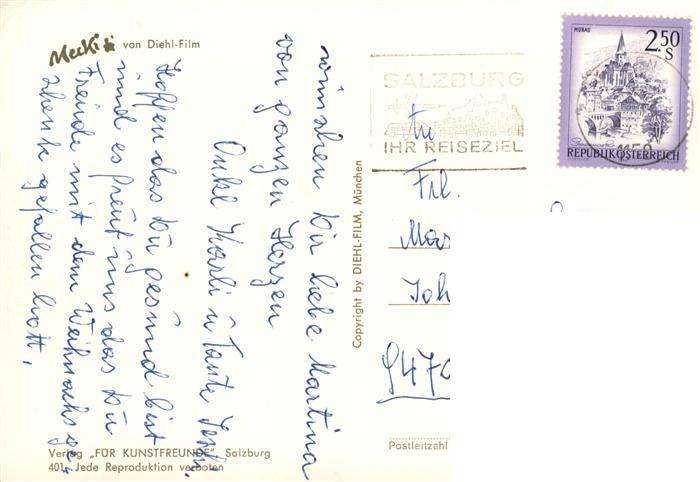 Mecki von Diehl-Film
wünschen Dir liebe Martina
von ganzen Herzen
Onkl Karli u Tante
Hoffen das Du gesund bist
und es freut uns das Du
Freude mit dem Weihnachsge-
schenk gefallen hatt.
Verlag „FÜR KUNSTFREUNDE“, Salzburg
401 Jede Reproduktion verboten
Copyright by DIEHL-FILM, München
SALZBURG
IHR REISEZIEL
MURAU
2.50
S
REPUBLIK ÖSTERREICH
An
Frl.
Mar
Joh
9470
Postleitzahl